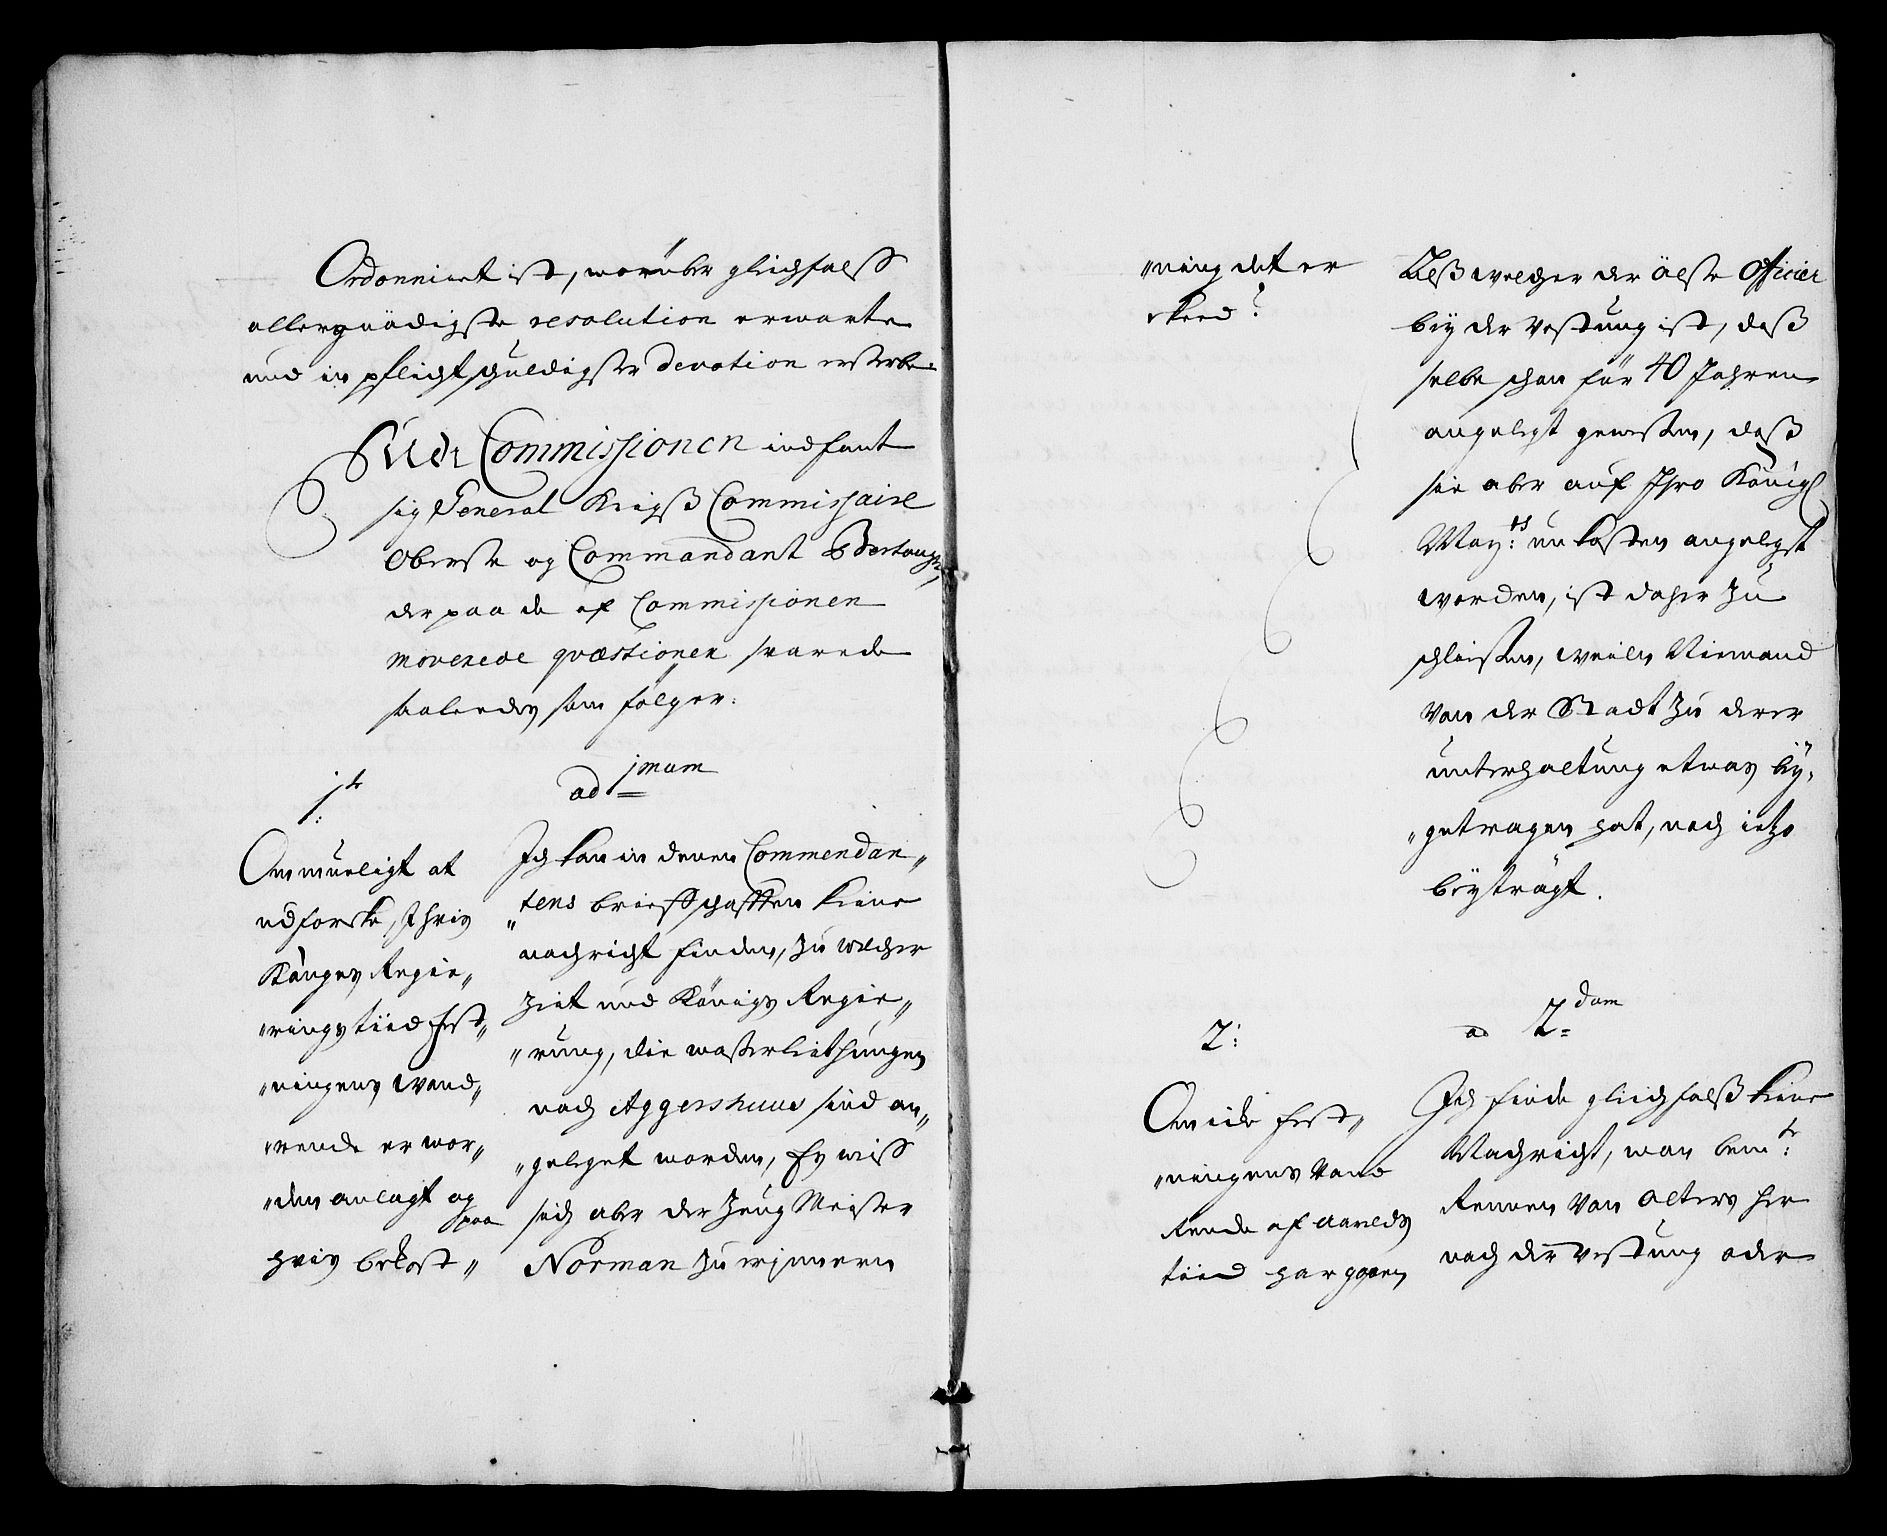 Ordonniret ist, worüber gleichfalss
allergnädigste resolution erwarte
und in pflichtschuldigster devotion ersterbe.
For Commissionen indfant
sig General Krigß Commissaire
Oberste og Commandant
der paa de af Commissionen
moverede qvæstioner svarede
saaledes som følger:
1te
Om mueligt at
udforske, i hvis
Konges Regie„
„rings tiid fest„
„ningens Wand„
„rende er wor„
„den anlagt og
paa
hvis bekost„
ad 1mum
Ich kan in denen Commendan„
„tens briefschafften keine
nachricht finden, zu welcher
Zeit und Königs Regie„
„rung, die waßerleithungen
nach Aggershuus sind an„
„geleget worden, Es weiss
sich aber der Zeug Meister
Norman zu erinnern
„ning det er
skeed?
Alß welcher der älste Officier
bey der Vestung ist, daß
selbe schon für 40 Jahren
angelegt gewesen, daß
sie aber auf Ihro Königl
May:ts unkosten angelegt
worden, ist daher zu
schleissen, weilen Niemand
von der Stadt zu derer
unterhaltung etwas bey„
„getragen hat, noch ietzo
beyträgt.
2:
Om icke fest„
„ningens Vand
rende af aarilds
tiid har gaaen
ad 2dum
Ich finde gleichfalß keine
Nachricht, wan bem:te
Rennen von alters her
nach der Vestung oder